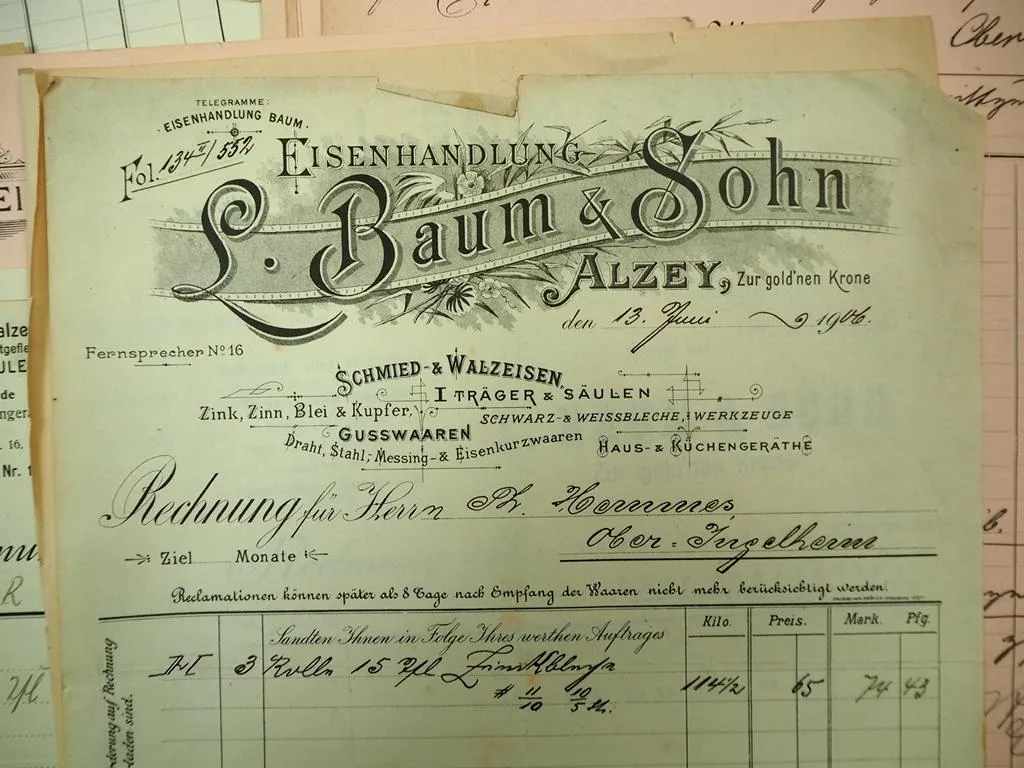 TELEGRAMME:
EISENHANDLUNG BAUM.
Fol. 134II/552
EISENHANDLUNG
L. Baum & Sohn
ALZEY, Zur gold'nen Krone
den 13. Juni 1906.
Fernsprecher No 16
SCHMIED- & WALZEISEN,
I TRÄGER & SÄULEN
Zink, Zinn, Blei & Kupfer,
SCHWARZ- & WEISSBLECHE, WERKZEUGE
GUSSWAAREN
Draht, Stahl, Messing- & Eisenkurzwaaren
HAUS- & KÜCHENGERÄTHE
Rechnung für Herrn Ph. Hemmes
Ober-Ingelheim
Ziel Monate
Reclamationen können später als 8 Tage nach Empfang der Waaren nicht mehr berücksichtigt werden.
Kilo. Preis. Mark. Pfg.
Sandten Ihnen in Folge Ihres werthen Auftrages
3 Rolle 15
114 1/2 65 74 43
# 11/10 10/5
auf Rechnung
laden sind.
Ober
Nr. 1
16.